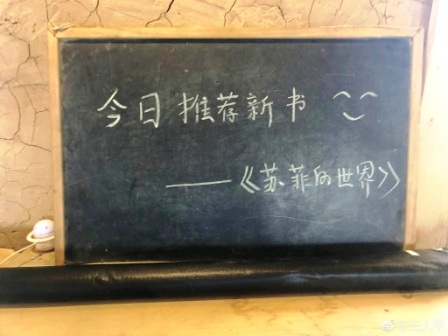 今日推荐新书
——《苏菲的世界》